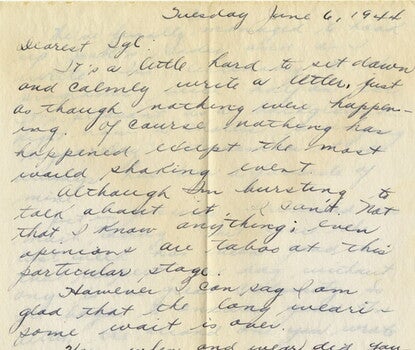 Tuesday June 6, 1944
Dearest Sgt.
It's a little hard to sit down
and calmly write a letter, just
as though nothing were happen-
ing. Of course nothing has
happened except the most
world shaking event
Although I'm bursting to
talk about it, I can't. Not
that I know anything; even
opinions are taboo at this
particular stage.
However I can say I am
glad that the long weari-
some wait is over.
when and did you